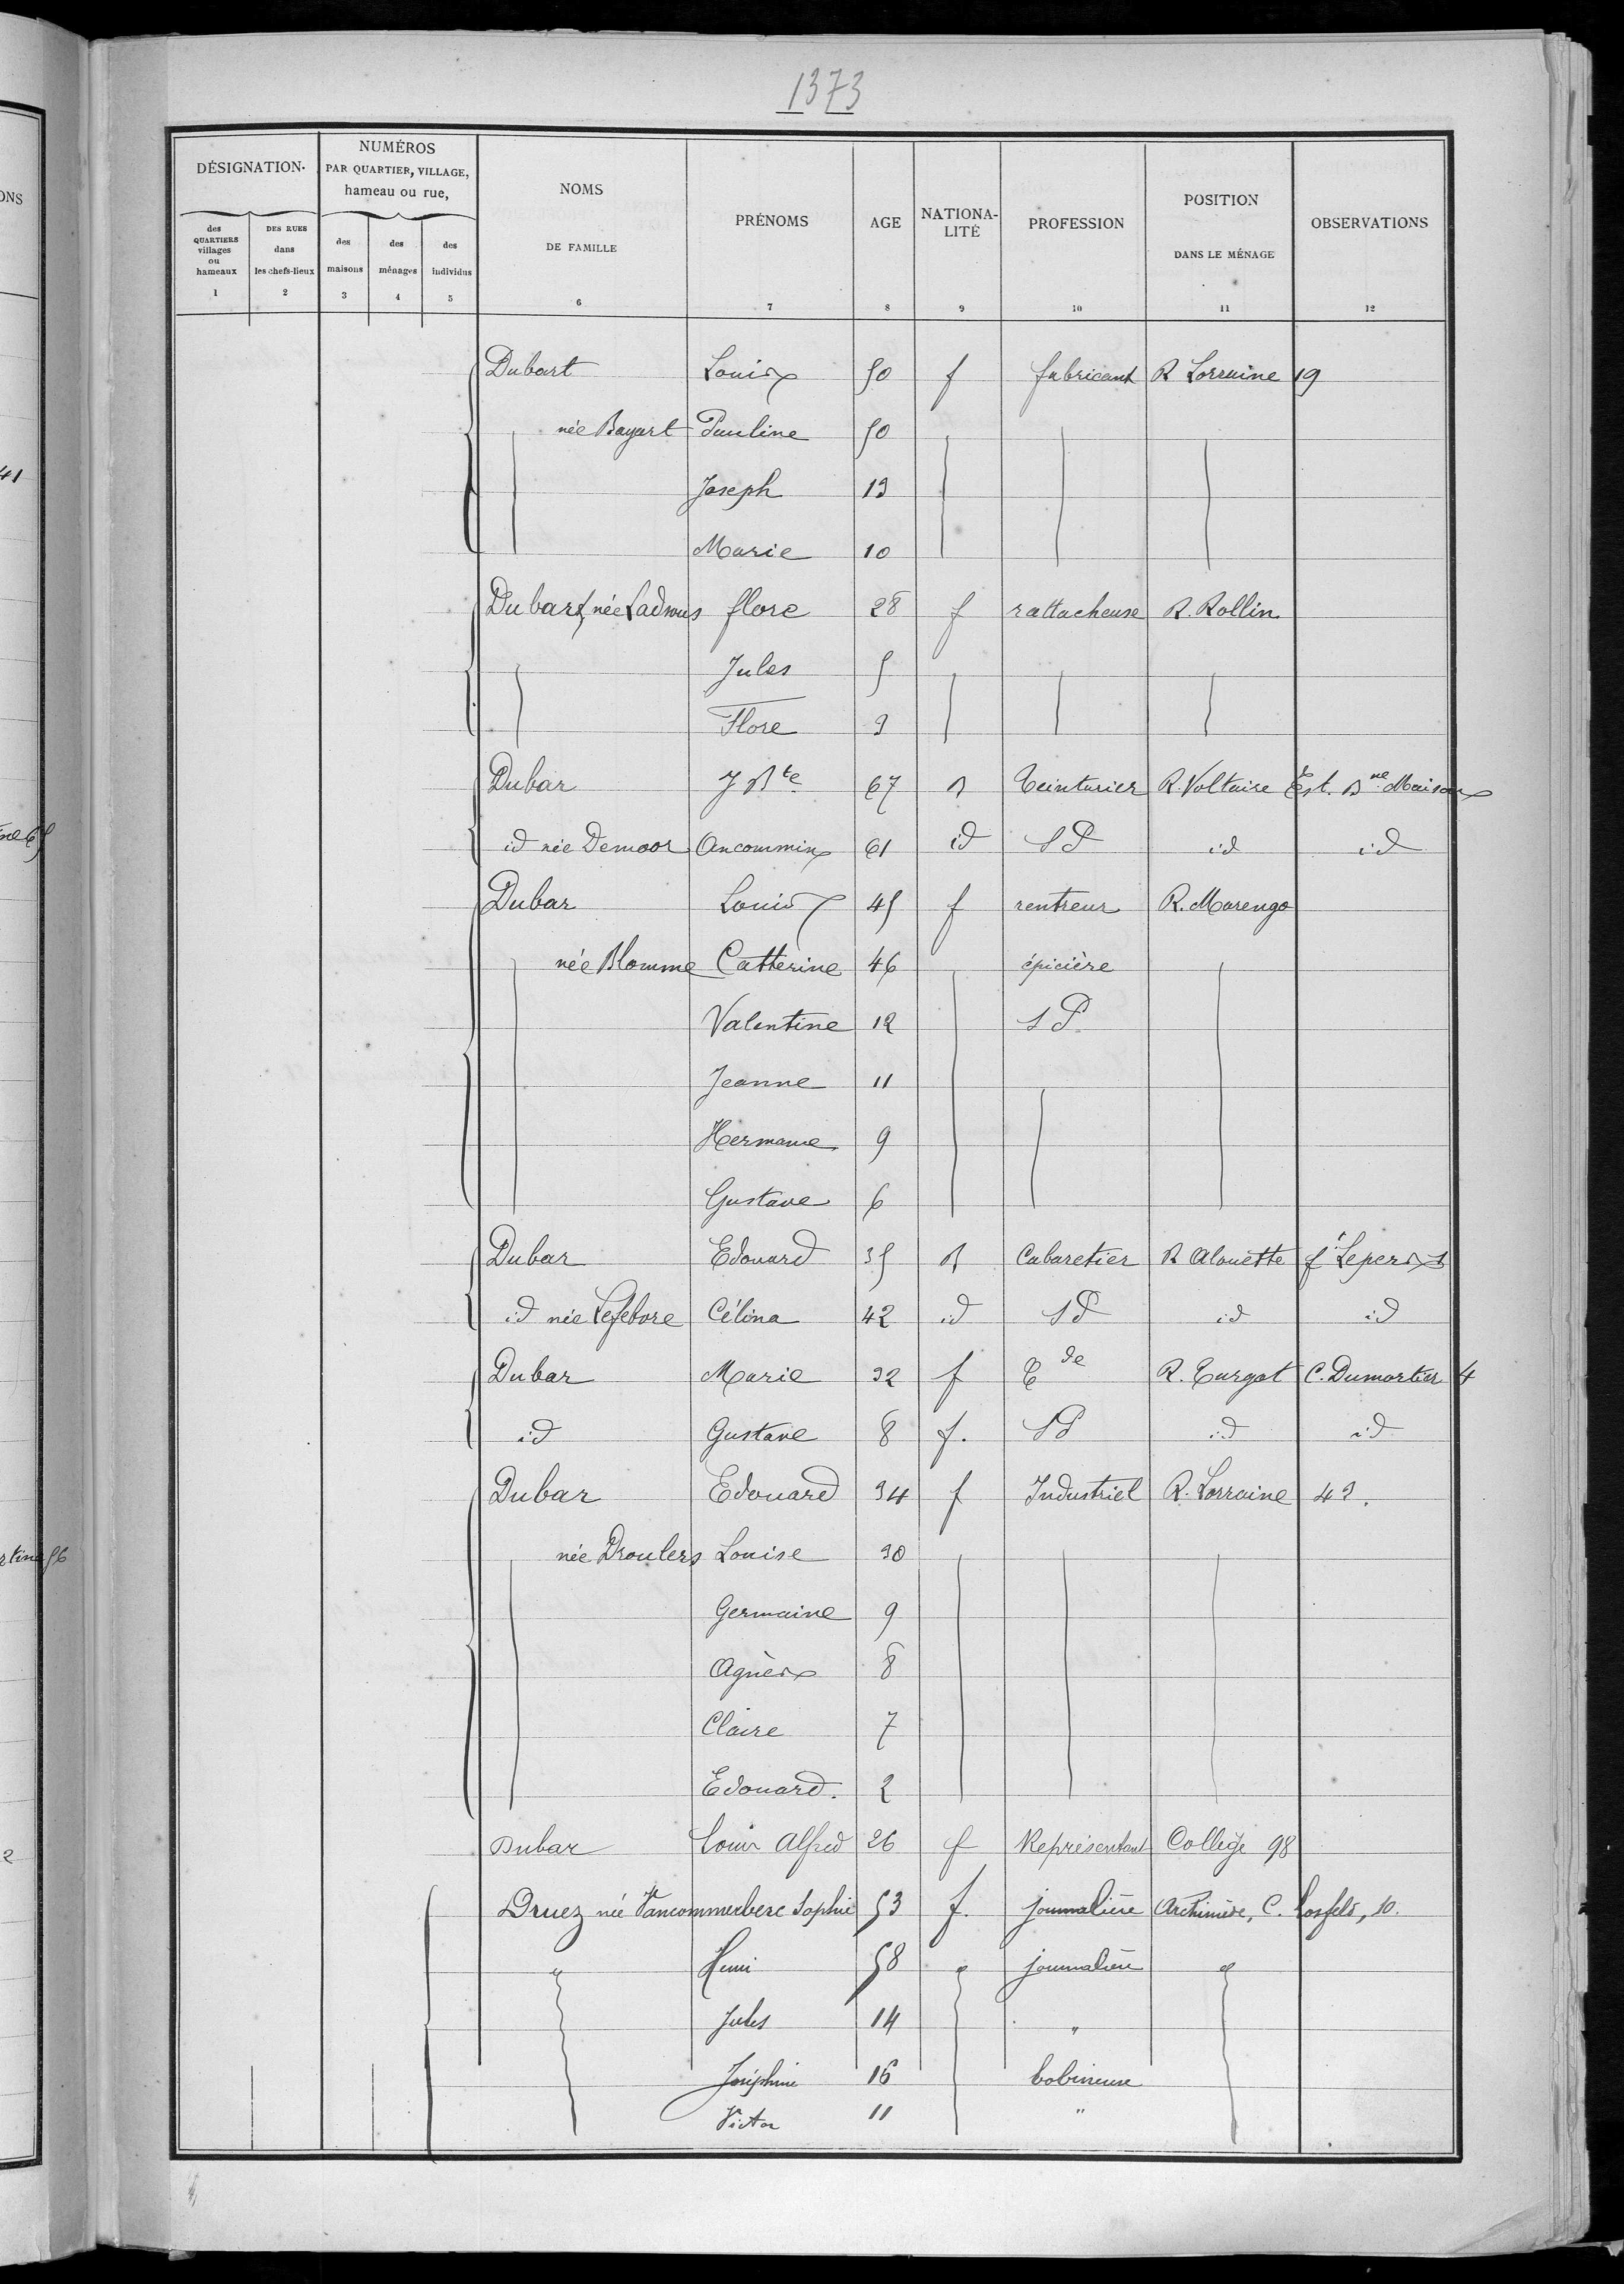 1373
DÉSIGNATION
NUMÉROS
PAR QUARTIER, VILLAGE,
hameau ou rue,
des QUARTIERS villages ou hameaux
DES RUES dans les chefs-lieux
des maisons
des ménages
des individus
NOMS DE FAMILLE
PRÉNOMS
AGE
NATIONALITÉ
PROFESSION
POSITION DANS LE MÉNAGE
OBSERVATIONS
1 2 3 4 5 6 7 8 9 10 11 12
Dubart Louis 50 f fabricant R Lorraine 19
née Bayart Pauline 50
Joseph 13
Marie 10
Dubart, née flore 28 f rattacheuse R. Rollin
Jules 5
Flore 3
Dubar J Bte 67 B Teinturier R. Voltaire Est. Bne Maison
id née Demoor 61 id SP id id
Dubar Louis 45 f rentreur R. Marengo
née Blomme Catherine 46 épicière
Valentine 12 SP
Jeanne 11
Hermance 9
Gustave 6
Dubar Edouard 35 B Cabaretier R Alouette f Lepers
id née Lefebvre Célina 42 id SP id id
Dubar Marie 32 f Tde R. Turgot C. Dumortier 4
id Gustave 8 f. SP id id
Dubar Edouard 34 f Industriel R. Lorraine 43.
née Droulers Louise 30
Germaine 9
Agnès 8
Claire 7
Edouard. 2
Dubar Louis Alfred 26 f Représentant Collège 98
Druez née Sophie 53 f. journalière Archimède, C. Losfeld, 10.
" Henri 58 " journalière "
Jules 14 "
Joséphine 16 bobineuse
Victor 11 "
41
2